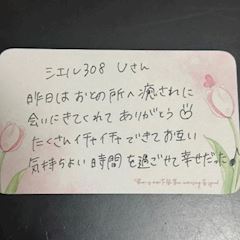 シエル308 Uさん
昨日はおとの所へ癒されに
会いにきてくれてありがとう
たくさんイチャイチャできてお互い
気持ちよい時間を過ごせて幸せだった